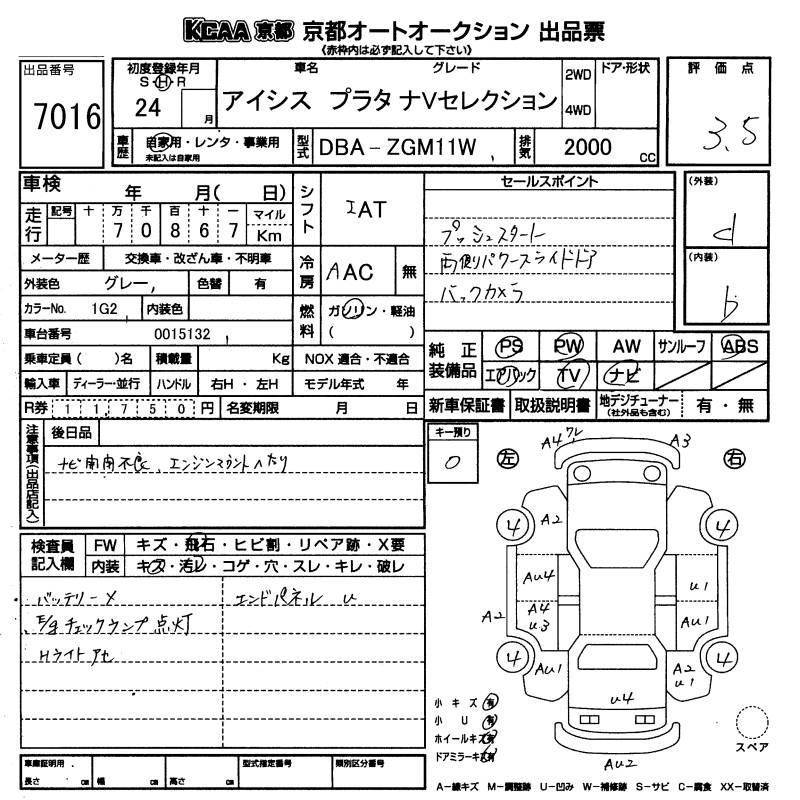 KCAA 京都 京都オートオークション 出品票
《赤枠内は必ず記入して下さい》
出品番号
7016
初度登録年月
S H R
24 月
車名 グレード
アイシス プラタナVセレクション
2WD
4WD
ドア・形状
評価点
3.5
車歴
自家用・レンタ・事業用
未記入は自家用
型式
DBA-ZGM11W
排気
2000 CC
車検 年 月( 日)
走行
記号 十 万 千 百 十 一 マイル
7 0 8 6 7 Km
メーター歴 交換車・改ざん車・不明車
外装色 グレー 色替 有
カラーNo. 1G2 内装色
車台番号 0015132
乗車定員( )名 積載量 Kg
輸入車 ディーラー・並行 ハンドル 右H・左H
R券 1 1 7 5 0 円 名変期限 月 日
シフト IAT
冷房 AAC 無
燃料 ガソリン・軽油
( )
NOX 適合・不適合
モデル年式 年
セールスポイント
プッシュスタート
両側パワースライドドア
バックカメラ
(外装)
d
(内装)
b
純正装備品
PS PW AW サンルーフ ABS
エアバック TV ナビ
新車保証書 取扱説明書 地デジチューナー(社外品も含む) 有・無
注意事項(出品店記入)
後日品
ナビ開閉不良、エンジンマウントヘタリ
キー預り
0
検査員記入欄
FW キズ・飛石・ヒビ割・リペア跡・X要
内装 キズ・汚レ・コゲ・穴・スレ・キレ・破レ
バッテリーメ エンドパネル U
E/gチェックランプ点灯
Hライトアセ
左 右
A4 ワレ A3
4 A2 4
AU4 U1
A2 A4 U3 AU1
4 AU1 A2 U1 4
U4
AU2
小キズ 有
小U 有
ホイールキズ 有
ドアミラーキズ 有
スペア
車庫証明用
長さ cm 幅 cm 高さ cm
型式指定番号
類別区分番号
A-線キズ M-調整跡 U-凹み W-補修跡 S-サビ C-腐食 XX-取替済